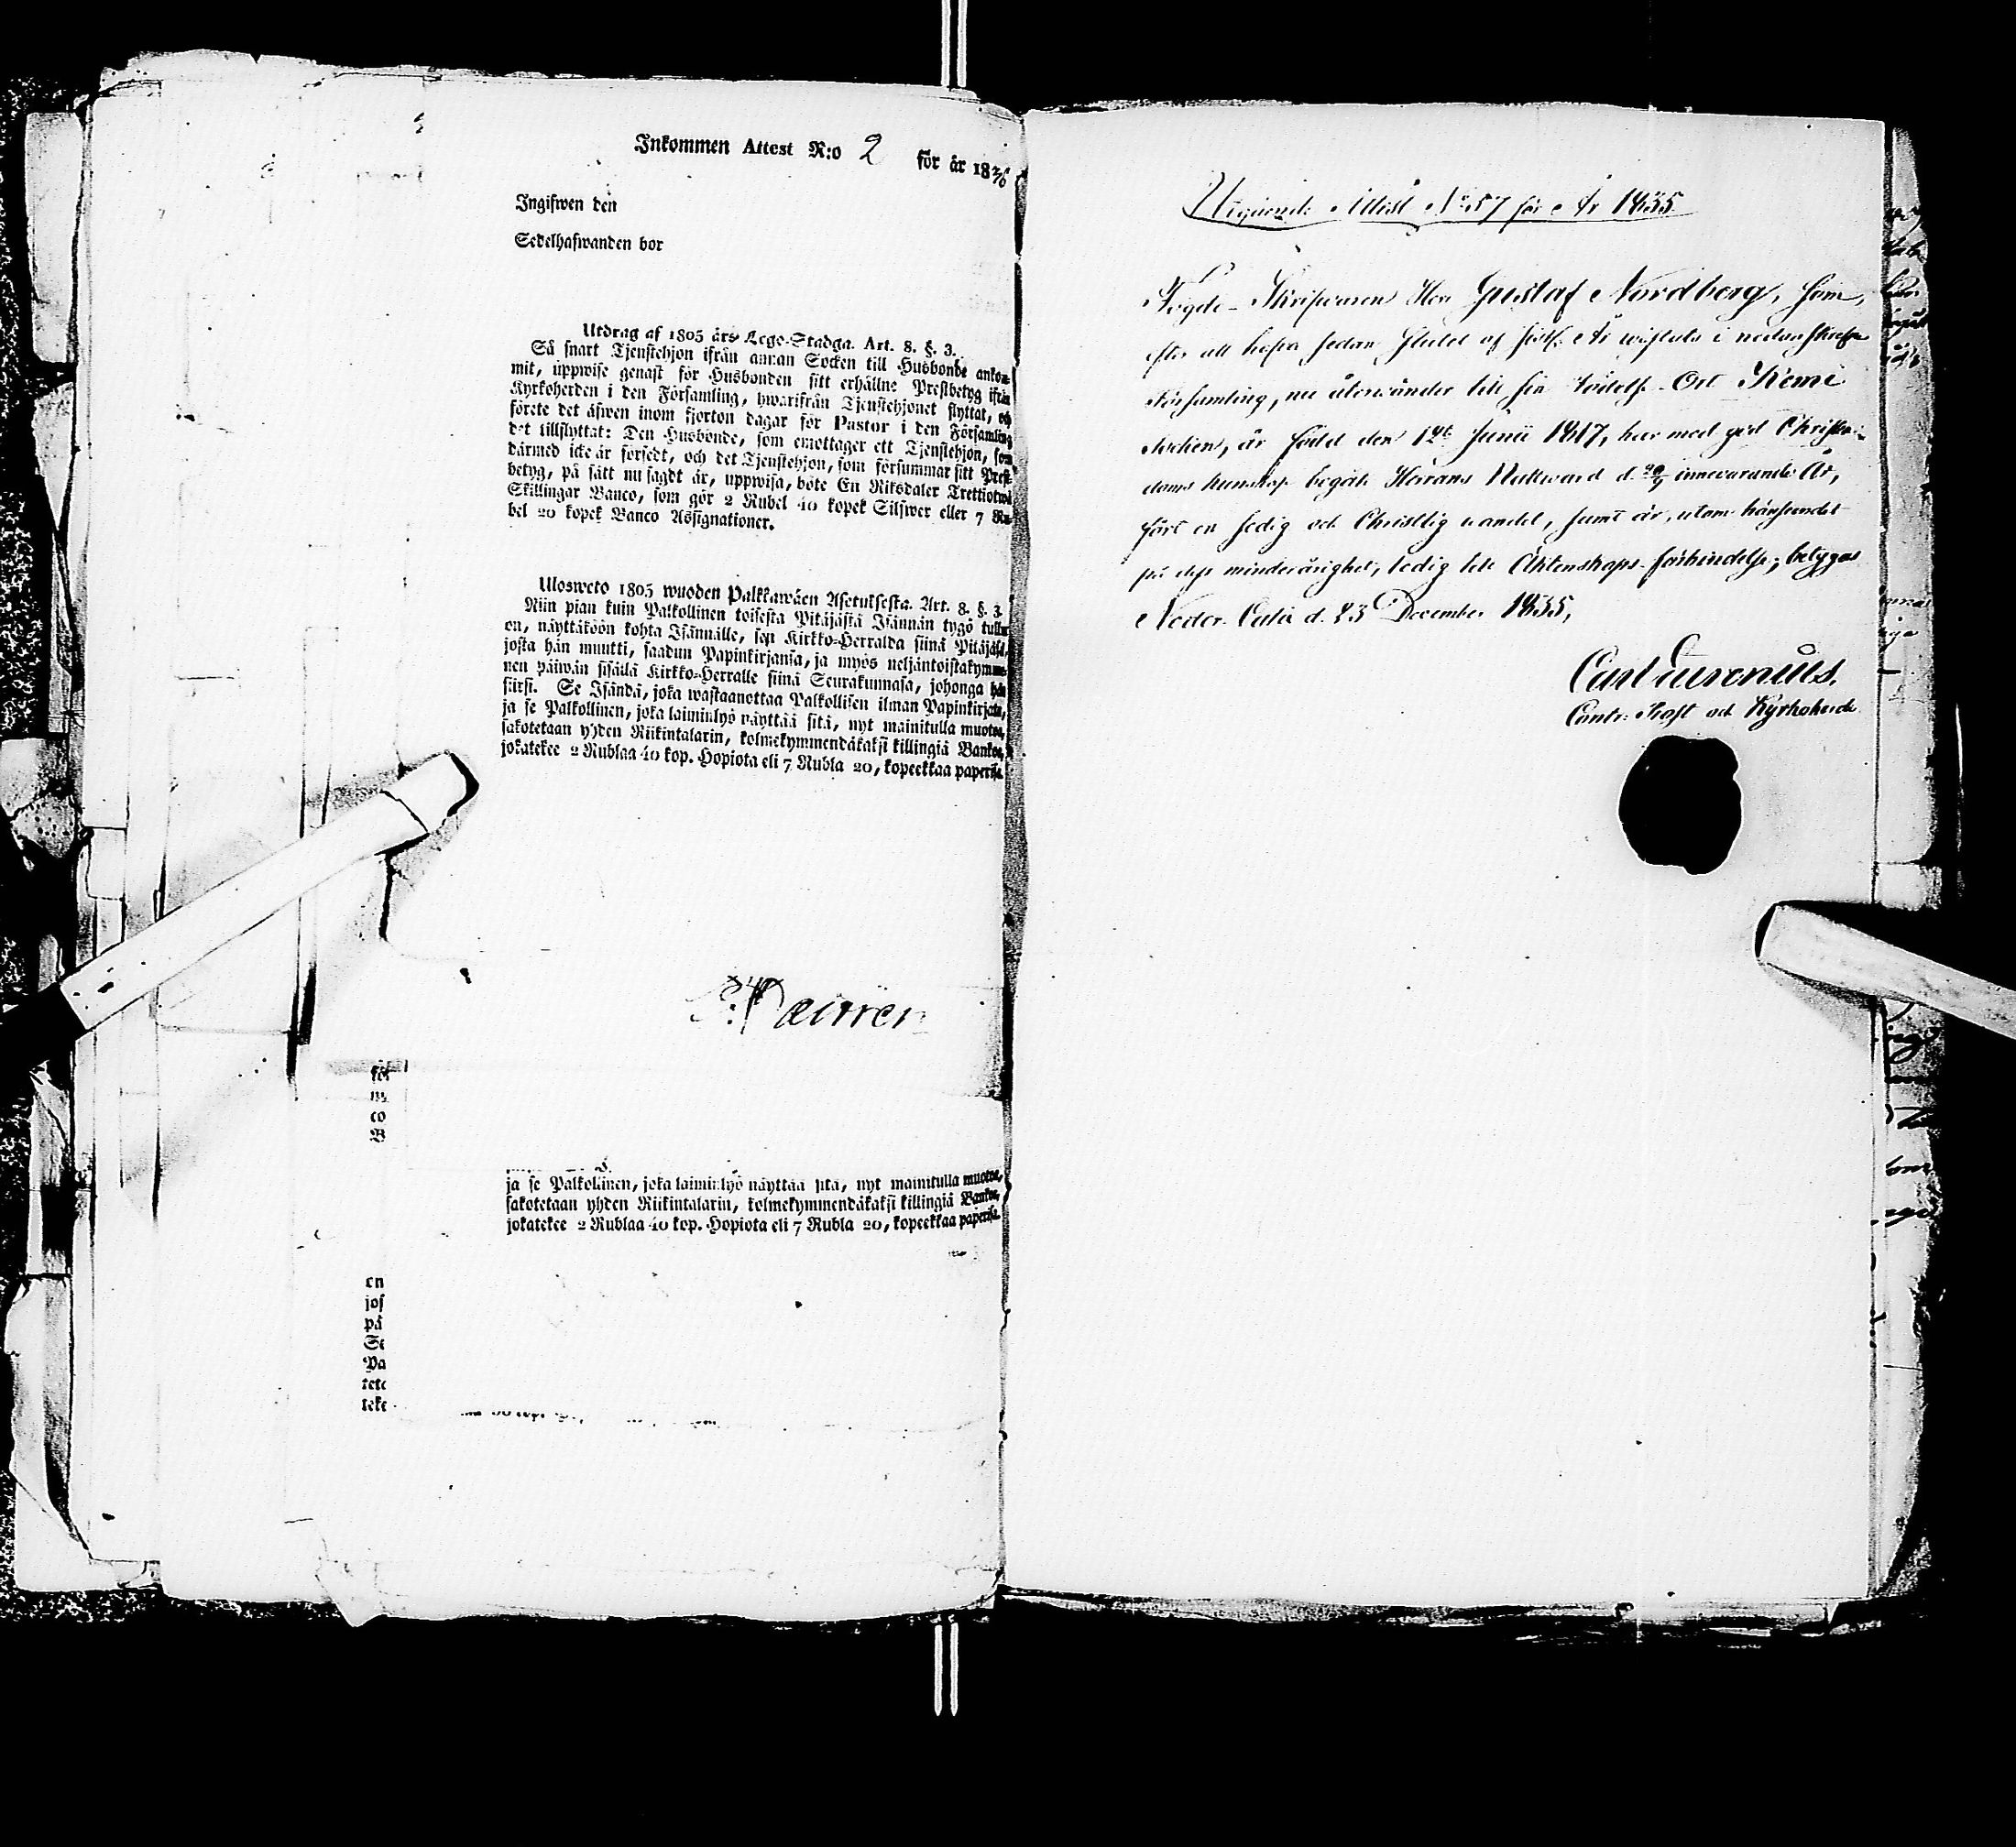 Inkommen Attest N:o 2 för år 1836
Ingifwen den
Sedelhafwanden bor
Utdrag af 1805 års Lego-Stadga. Art. 8. §. 3.
Så snart Tjenstehjon ifrån annan Socken till Husbonde ankom-
mit, uppwise genast för Husbonden sitt erhållne Prestbetyg ifrån
Kyrkoherden i den Församling, hwarifrån Tjenstehjonet flyttat, och
förete det äfwen inom fjorton dagar för Pastor i den Församling
det tillflyttat: Den Husbonde, som emottager ett Tjenstehjon, som
därmed icke är försedt, och det Tjenstehjon, som försummar sitt Prest-
betyg, på sätt nu sagdt är, uppwisa, böte En Riksdaler Trettiotwå
Skillingar Banco, som gör 2 Rubel 40 kopek Silfwer eller 7 Ru-
bel 20 kopek Banco Assignationer.
Ulosweto 1805 wuoden Palkkawäen Asetuksesta. Art. 8. §. 3.
Niin pian kuin Palkollinen toisesta Pitäjästä Isännän tygö tullu
on, näyttäköön kohta Isännälle, sen Kirkko-Herralda siinä Pitäjäsä,
josta hän muutti, saadun Papinkirjansa, ja myös neljäntoistakymme-
nen päiwän sisällä Kirkko-Herralle siinä Seurakunnasa, johonga hän
siirsi. Se Isändä, joka wastaanottaa Palkollisen ilman Papinkirjata,
ja se Palkollinen, joka laiminlyö näyttää sitä, nyt mainitulla muotoa,
sakotetaan yhden Riikintalarin, kolmekymmendäkaksi killingiä Bankoa,
jokatekee 2 Rublaa 40 kop. Hopiota eli 7 Rubla 20, kopeekkaa paperisa.
för
m
co
B
ja se Palkollinen, joka laiminlyö näyttää sitä, nyt mainitulla muotoa,
sakotetaan yhden Riikintalarin, kolmekymmendäkaksi killingiä Bankoa,
jokatekee 2 Rublaa 40 kop. Hopiota eli 7 Rubla 20, kopeekkaa paperisa.
en
jos
pä
Se
Pa
tete
teke
Utgående Attest No 57 för År 1835
Fogde-Skrifvaren Herr Gustaf Nordberg, som,
efter att hafva sedan slutet af sistl. År vistats i nedanskrefne
Församling, nu återvänder till sin födelse-Ort Kemi
Socken, är född den 12te Junii 1817, har med god Christen-
doms kunskap begått Herrans Nattvard d. innevarande År,
fört en sedig och Christlig vandel, samt är, utom hänseendet
på dess minderårighet, ledig till Äktenskaps-förbindelse; betygas
Neder Calix d. 23 December 1835,
Contr: Prost och Kyrkoherde